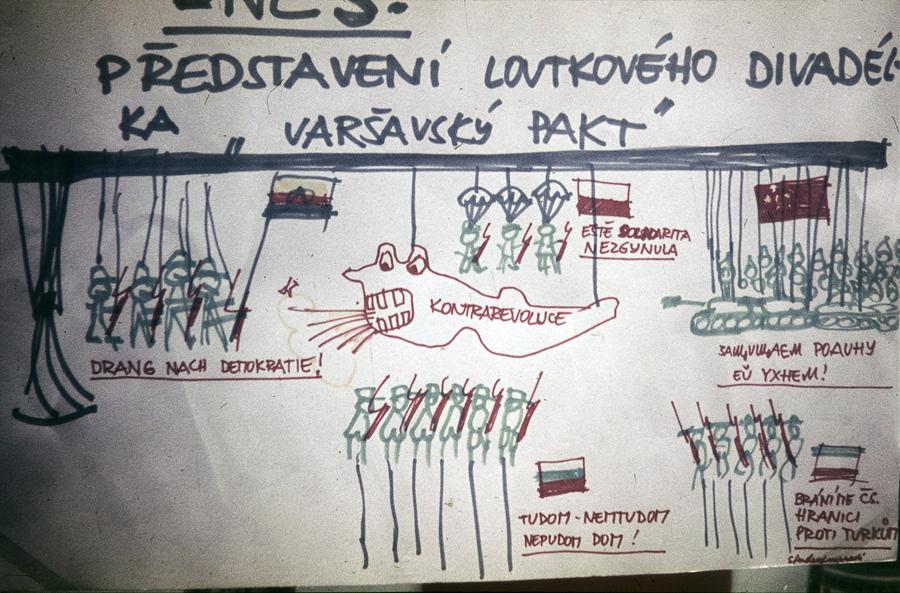 PŘEDSTAVENÍ LOUTKOVÉHO DIVADÉL-
KA "VARŠAVSKÝ PAKT"
EŠTĚ SOLIDARITA
NEZGYNULA
KONTRAREVOLUCE
DRANG NACH DEMOKRATIE!
РОДИНУ
ЕЙ УХНЕМ!
TUDOM - NEMTUDOM
NEPUDOM DOM!
BRÁNÍME ČS.
HRANICI
PROTI TURKŮM